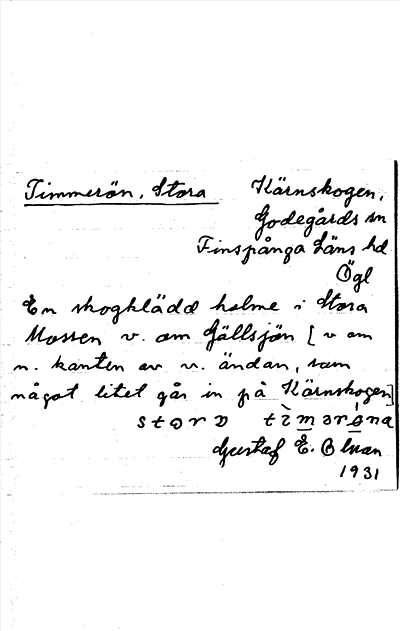 Timmerön, Stora Kärnskogen,
Godegårds sn
Finspånga Läns hd
Ögl
En skogklädd holme i Stora
Mossen v. om Gällsjön [v om
n. kanten av n. ändan, som
något litet går in på Kärnskogen]
Gustaf E. Olson
1931